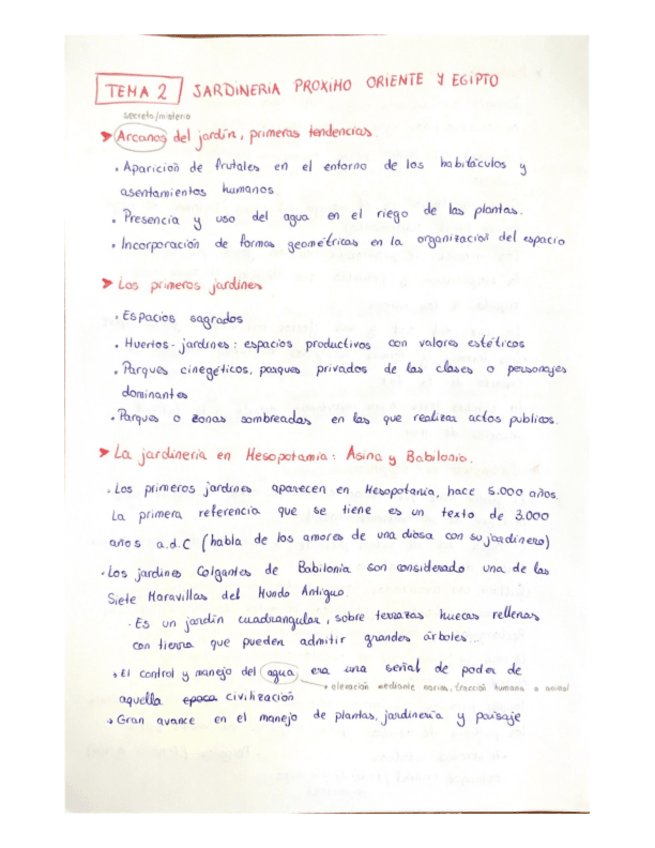 TEMA 2 JARDINERIA PROXIMO ORIENTE Y EGIPTO
secreto/misterio
➤ Arcanos del jardín, primeras tendencias.
• Aparición de frutales en el entorno de los habitáculos y
asentamientos humanos.
• Presencia y uso del agua en el riego de las plantas.
• Incorporación de formas geométricas en la organización del espacio
➤ Los primeros jardines
• Espacios sagrados
• Huertos-jardines: espacios productivos con valores estéticos
• Parques cinegéticos, parques privados de las clases o personajes
dominantes
• Parques o zonas sombreadas en las que realizar actos publicos.
➤ La jardinería en Mesopotamia: Asiria y Babilonia.
• Los primeros jardines aparecen en Mesopotamia, hace 5.000 años.
La primera referencia que se tiene es un texto de 3.000
años a.d.C (habla de los amores de una diosa con su jardinero)
• Los jardines Colgantes de Babilonia son considerado una de las
Siete Maravillas del Mundo Antiguo.
• Es un jardín cuadrangular, sobre terrazas huecas rellenas
con tierra que pueden admitir grandes árboles...
→ El control y manejo del agua era una señal de poder de
→ elevación mediante norias, tracción humana o animal
aquella epoca civilización
→ Gran avance en el manejo de plantas, jardinería y paisaje